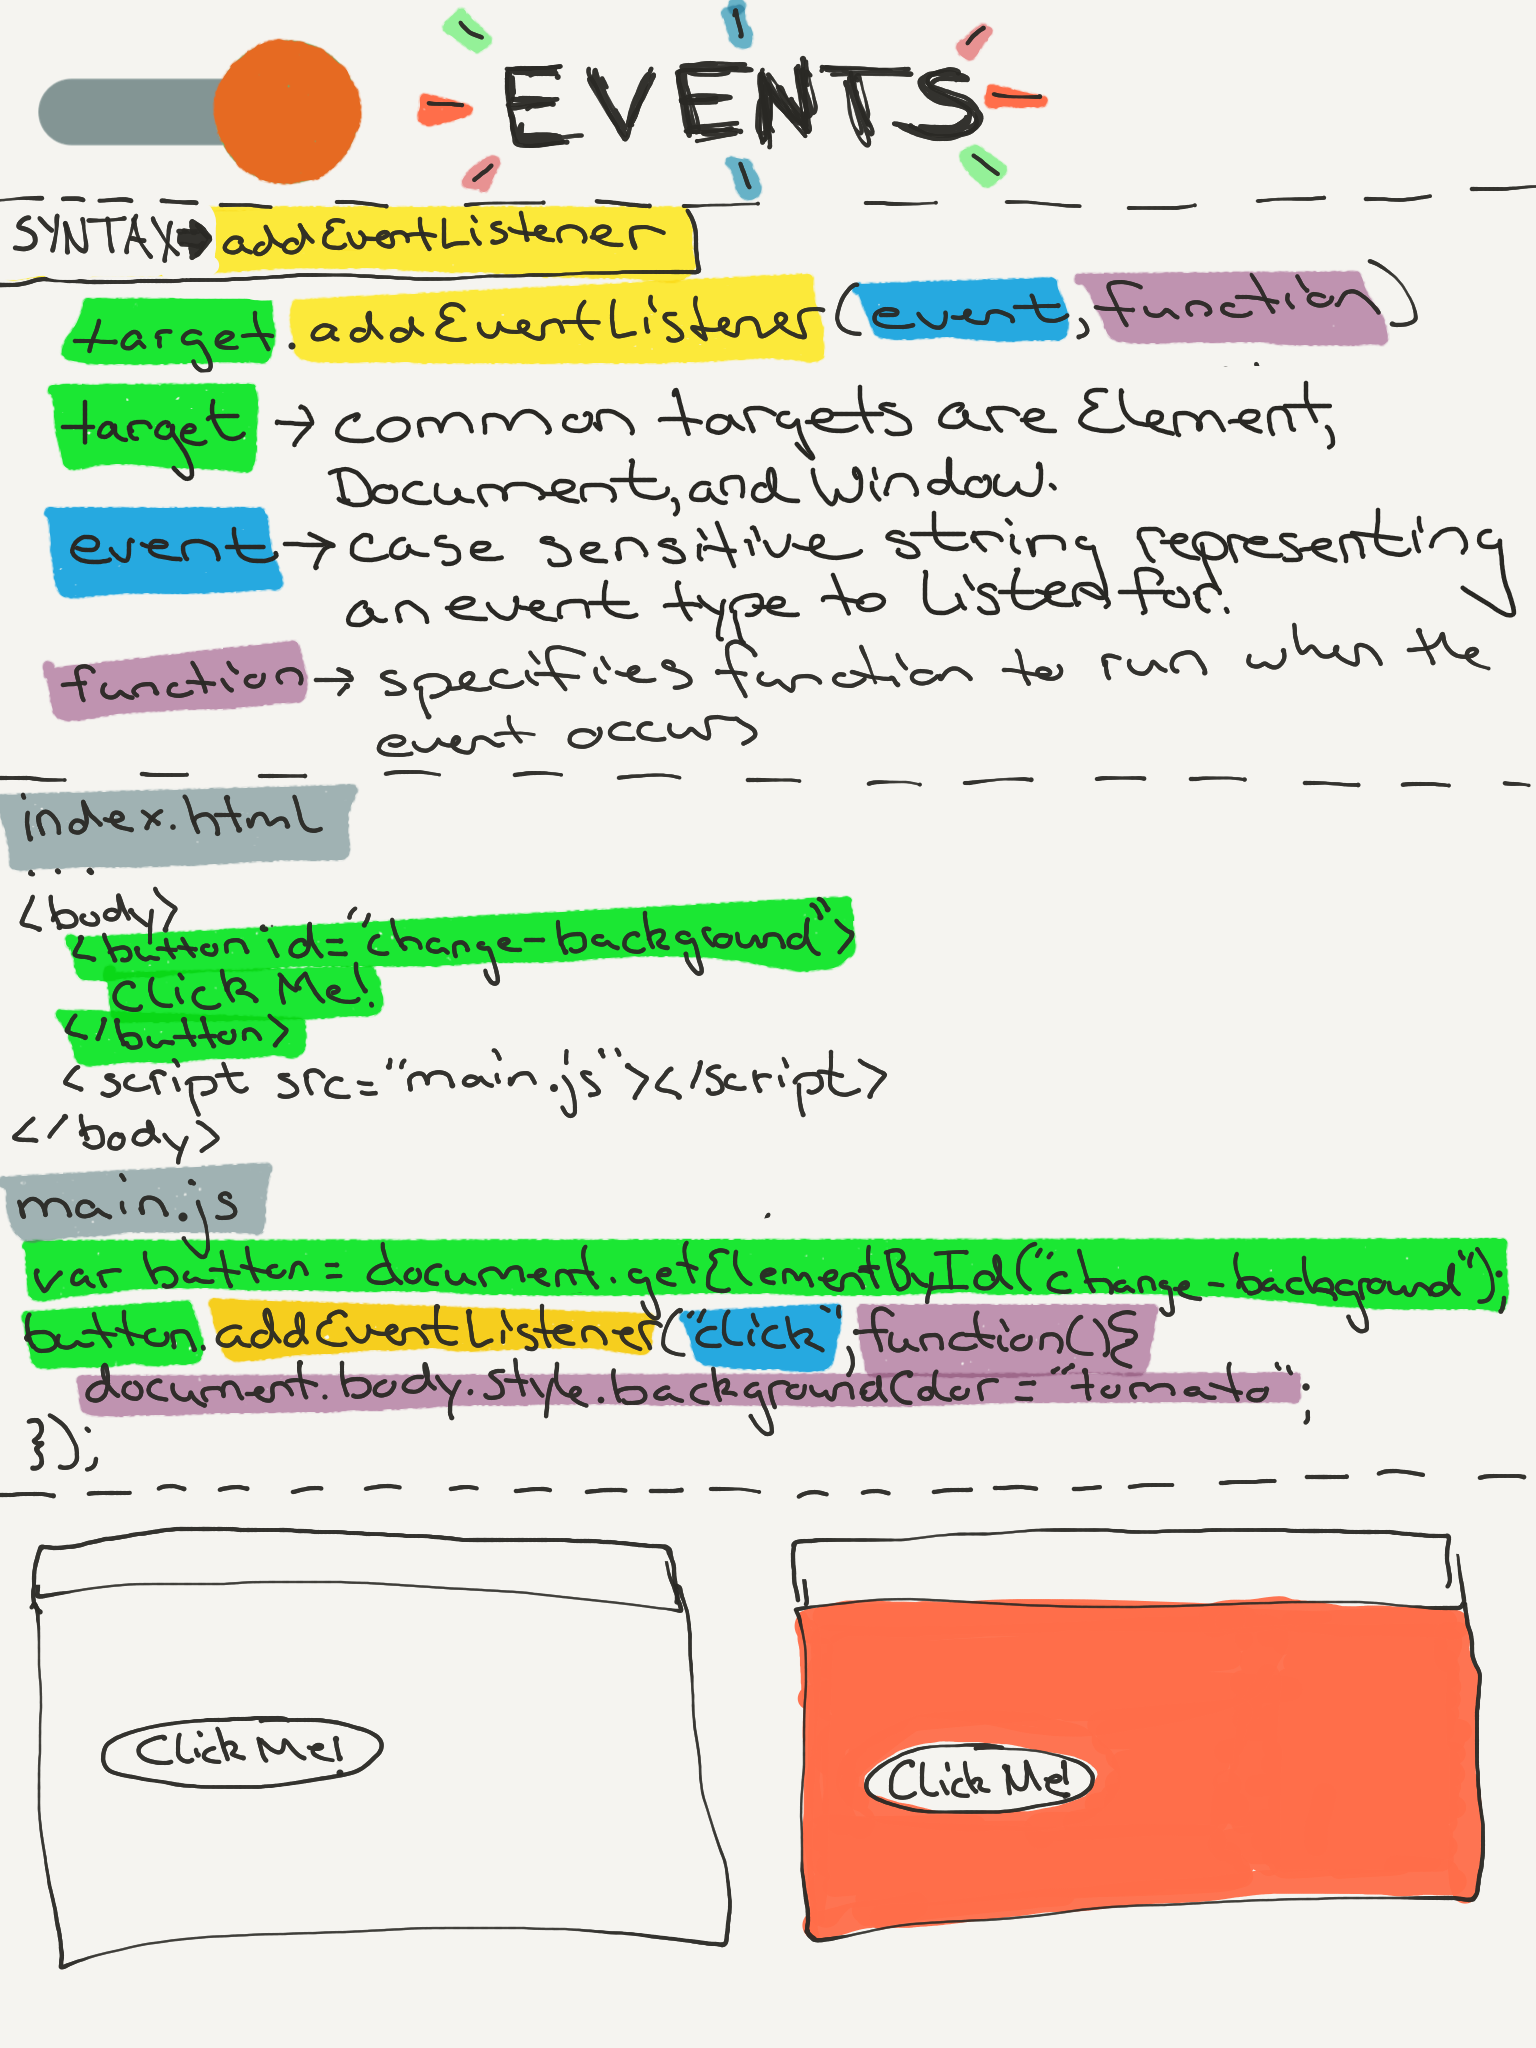 EVENTS
SYNTAX➡addEventListener
target.addEventListener(event, function)
target → common targets are Element,
Document, and Window.
event → case sensitive string representing
an event type to listed for.
function → specifies function to run when the
event occurs
index.html
...
<body>
<button id="change-background">
Click Me!
</button>
<script src="main.js"></script>
</body>
main.js
var button = document.getElementById("change-background");
button.addEventListener("click", function(){
document.body.style.backgroundColor = "tomato";
});
Click Me!
Click Me!